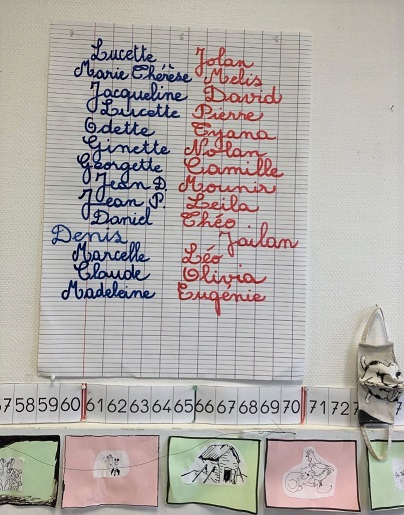 Lucette
Marie Thérèse
Jacqueline
Lucette
Odette
Ginette
Georgette
Jean D.
Jean P.
Daniel
Denis
Marcelle
Claude
Madeleine
Jolan
Melis
David
Pierre
Tyana
Nolan
Camille
Mounir
Leila
Théo
Jaïlan
Léo
Olivia
Eugénie
57 58 59 60 61 62 63 64 65 66 67 68 69 70 71 72